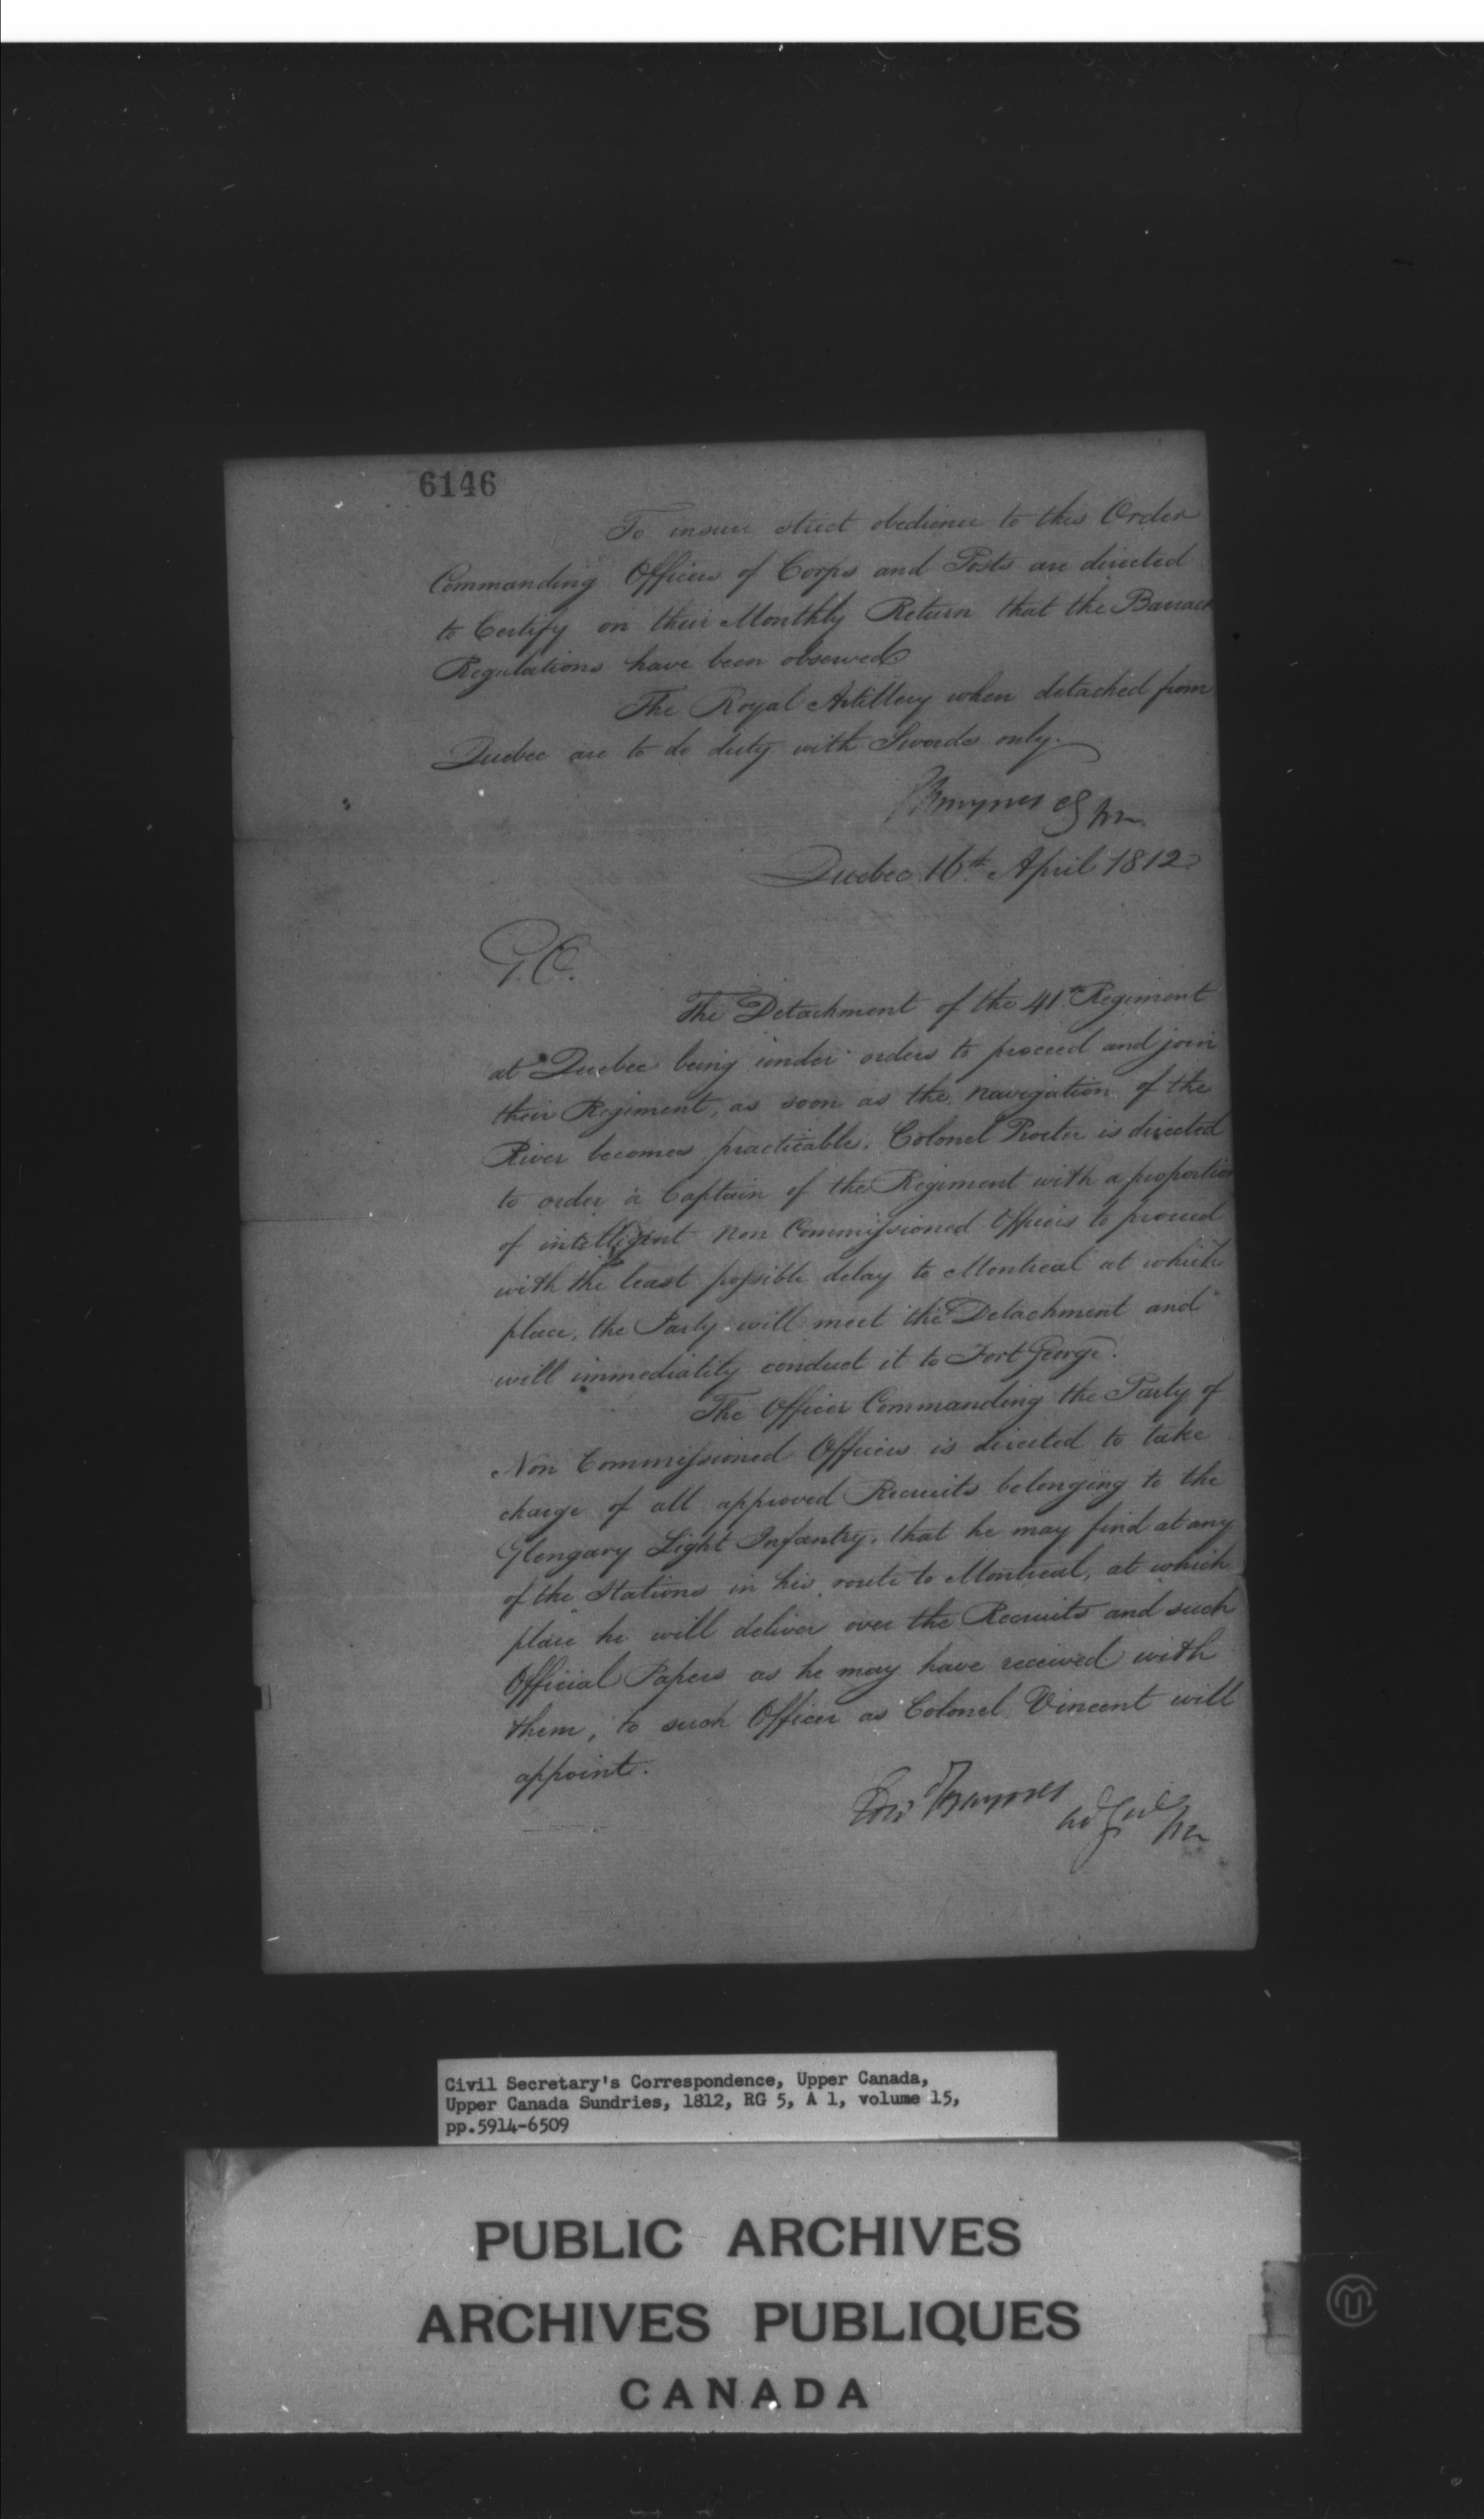 6146
To insure strict obedience to this Order
Commanding Officers of Corps and Posts are directed
to Certify on their Monthly Return that the Barrack
Regulations have been observed
The Royal Artillery when detached from
Quebec are to do duty with Swords only.
Baynes
Quebec 16th April 1812
G.O.
The Detachment of the 41st Regiment
at Quebec being under orders to proceed and join
their Regiment, as soon as the navigation of the
River becomes practicable. Colonel Procter is directed
to order a Captain of the Regiment with a proportion
of intelligent Non Commissioned Officers to proceed
with the least possible delay to Montreal at which
place, the Party will meet the Detachment and
will immediately conduct it to Fort George.
The Officer Commanding the Party of
Non Commissioned Officers is directed to take
charge of all approved Recruits belonging to the
Glengary Light Infantry, that he may find at any
of the Stations in his route to Montreal, at which
place he will deliver over the Recruits and such
Official Papers as he may have received with
them, to such Officer as Colonel Vincent will
appoint.
Edw Baynes
Adj Gnl
Civil Secretary's Correspondence, Upper Canada,
Upper Canada Sundries, 1812, RG 5, A 1, volume 15,
pp.5914-6509
PUBLIC ARCHIVES
ARCHIVES PUBLIQUES
CANADA